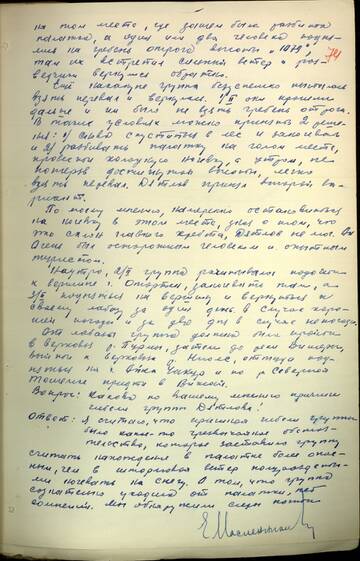 на том месте, где затем была разбита
палатка, а один или два человека подня-
лись на гребень отрога высоты "1079"
там их встретил сильный ветер и они
вернулись обратно.
74
Ещё накануне группа безуспешно пыталась
взять перевал и вернулась. 1/II они прошли
дальше и им было не взять гребень отрога.
В таких условиях можно принять 2 реше-
ния: 1) снова спуститься в лес и заночевать
и 2) разбивать палатку на голом месте,
провести холодную ночёвку, а утром, не
потеряв достигнутой высоты, легко
взять перевал. Дятлов принял второй ва-
риант.
По моему мнению, намеренно остановиться
на ночёвку в этом месте, зная о том, что
это склон главного хребта, Дятлов не мог. Он
очень был осторожным человеком и опытным
туристом.
Наутро, 2/II группа рассчитывала подойти
к вершине г. Отортен, заночевать там, а
3/II подняться на вершину и вернуться к
своему лабазу за один день в случае хоро-
шей погоды и за два дня в случае непогоды.
От лабаза группа должна была пройти
в верховья р. Пурмы, затем до реки Вишеры,
выйти к верховьям р. Ниолс, оттуда под-
няться на г. Ойка Чакур и по р. Северной
Тошемке придти в Вижай.
Вопрос: Какова по Вашему мнению причина
гибели группы Дятлова?
Ответ: Я считаю, что причиной гибели группы
было какие-то чрезвычайные обстоя-
тельства, которые заставили группу
считать нахождение в палатке более опас-
ным, чем в штормовой ветер полураздеты-
ми ночевать на снегу. О том, что группа
сознательно уходила от палатки, нет
сомнений. Мы обнаружили следы
Е Масленников